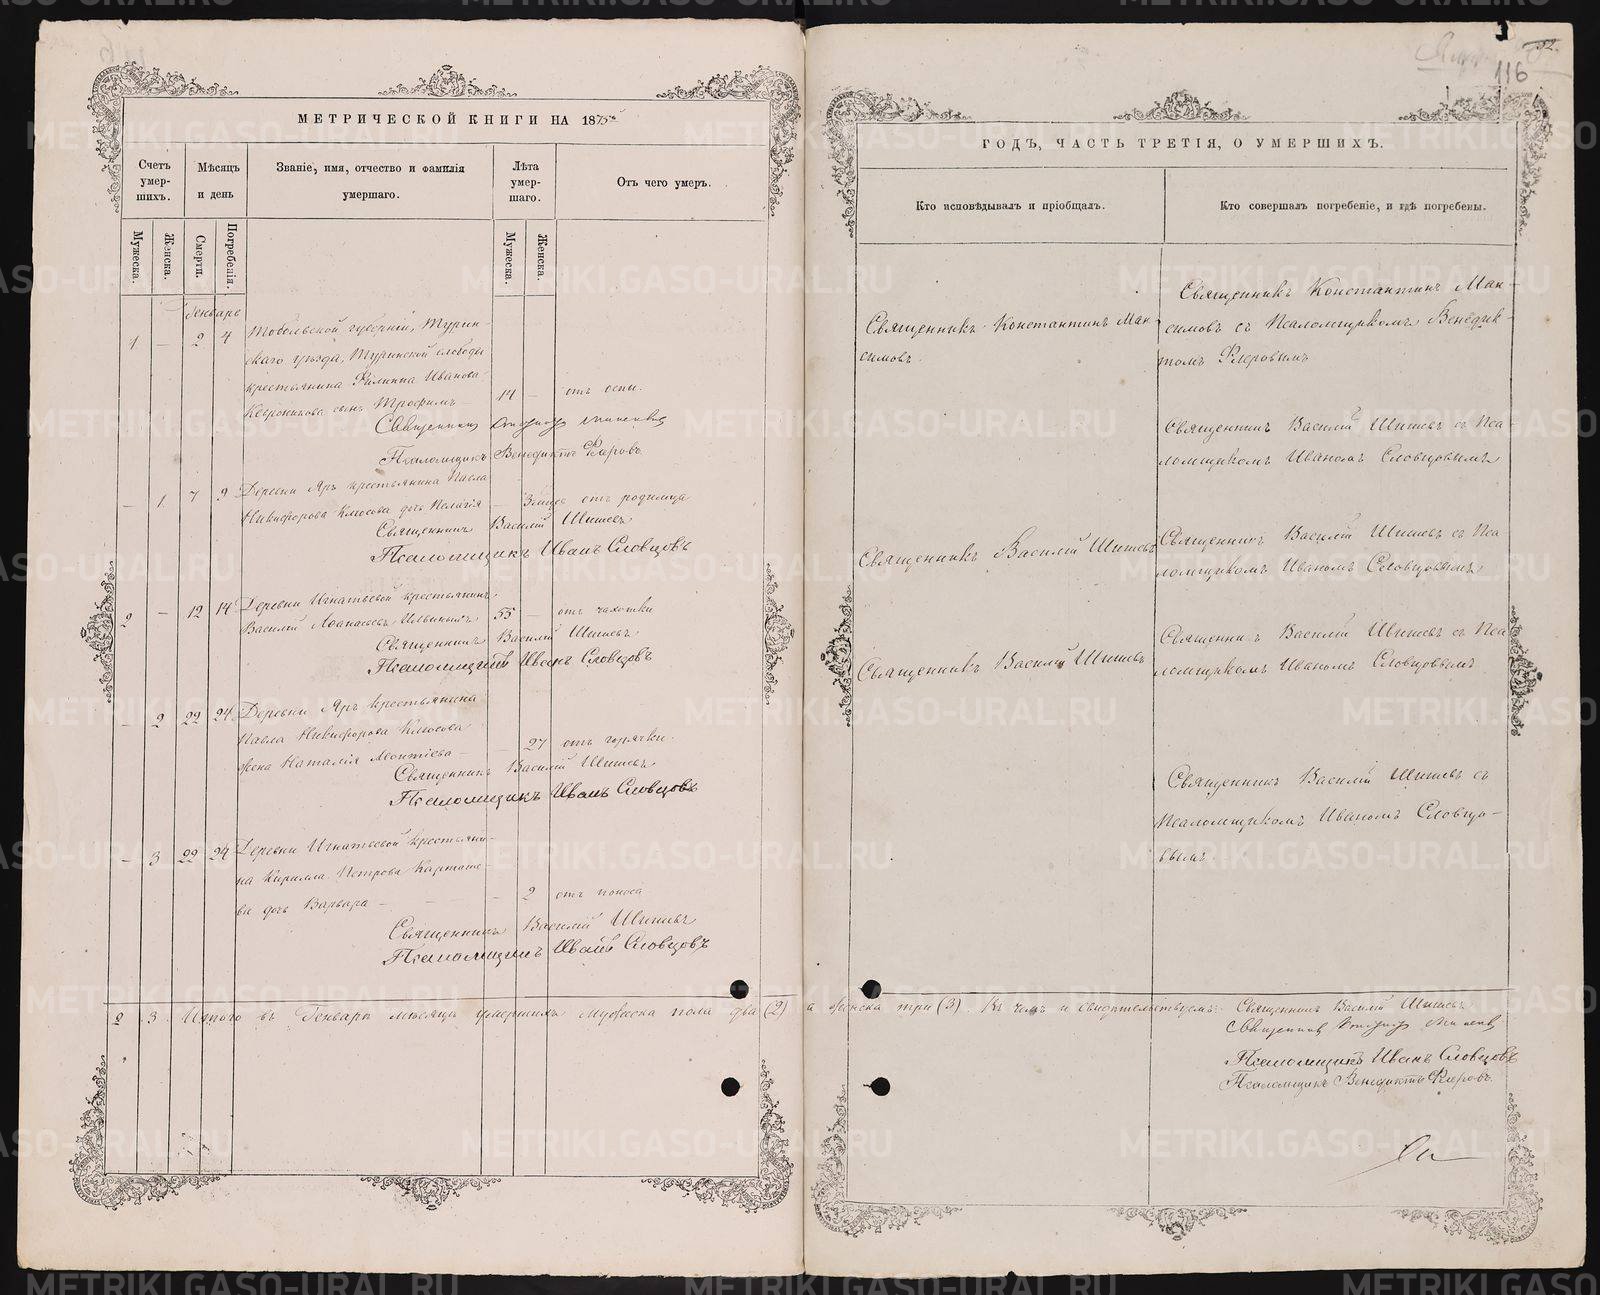 МЕТРИЧЕСКОЙ КНИГИ НА 1875
Счетъ умер-шихъ.
Мѣсяцъ и день
Званіе, имя, отчество и фамилія умершаго.
Лѣта умер-шаго.
Отъ чего умеръ.
Мужеска.
Женска.
Смерти.
Погребенія.
Мужеска.
Женска.
Генварь
1 — 2 4 Тобольской губерніи, Турин-
скаго уѣзда, Туринской слободы
крестьянина Филиппа Иванова
сынъ Трофимъ — 14 — отъ оспы.
Священникъ
Псаломщикъ Венедиктъ Флеровъ
— 1 7 9 Деревни Яръ крестьянина Павла
Никифорова Клюсова дочь Пелагія — отъ родимца
Священникъ Василій Шишевъ
Псаломщикъ Иванъ Словцовъ
2 — 12 14 Деревни Игнатьевой крестьянинъ
Василій Афанасьевъ Ильиныхъ 55 — отъ чахотки
Священникъ Василій Шишевъ
Псаломщикъ Иванъ Словцовъ
— 2 22 24 Деревни Яръ крестьянина
Павла Никифорова Клюсова
жена Наталія Леонтіева — 27 отъ горячки.
Священникъ Василій Шишевъ
Псаломщикъ Иванъ Словцовъ
— 3 22 24 Деревни Игнатьевой крестьяни-
на Кирилла Петрова Карташе-
ва дочь Варвара — — — 2 отъ поноса
Священникъ Василій Шишевъ
Псаломщикъ Иванъ Словцовъ
2 3 Итого въ Генварѣ мѣсяцѣ умершихъ мужеска пола два (2) а женска три (3). Въ чемъ и свидѣтельствуемъ:
52.
116
ГОДЪ, ЧАСТЬ ТРЕТІЯ, О УМЕРШИХЪ.
Кто исповѣдывалъ и пріобщалъ.
Кто совершалъ погребеніе, и гдѣ погребены.
Священникъ Константинъ Мак-
симовъ.
Священникъ Константинъ Мак-
симовъ съ Псаломщикомъ Венедик-
томъ Флеровымъ
Священникъ Василій Шишевъ съ Пса-
ломщикомъ Иваномъ Словцовымъ
Священникъ Василій Шишевъ
Священникъ Василій Шишевъ съ Пса
ломщикомъ Иваномъ Словцовымъ
Священникъ Василій Шишевъ
Священникъ Василій Шишевъ съ Пса
ломщикомъ Иваномъ Словцовымъ
Священникъ Василій Шишевъ съ
Псаломщикомъ Иваномъ Словцо-
вымъ.
Священникъ Василій Шишевъ
Священникъ
Псаломщикъ Иванъ Словцовъ
Псаломщикъ Венедиктъ Флеровъ.
METRIKI.GASO-URAL.RU